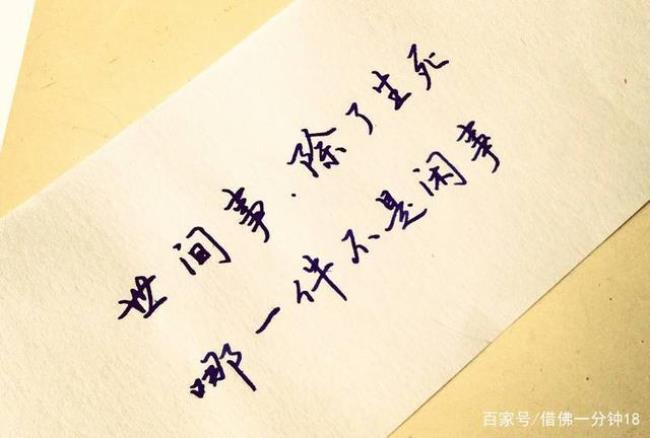 世间事·除了生死
哪一件不是闲事
百家号/借佛一分钟18